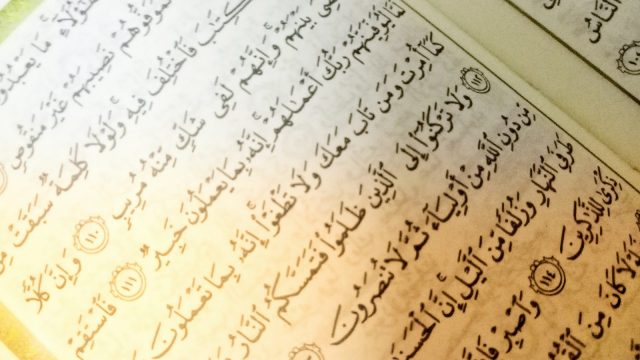 هَٰٓؤُلَآءِ مَا
لَمُوَفُّوهُمْ نَصِيبَهُمْ غَيْرَ مَنقُوصٍ
فَٱخْتُلِفَ فِيهِ وَلَوْلَا كَلِمَةٌ سَبَقَتْ
بَيْنَهُمْ وَإِنَّهُمْ لَفِى شَكٍّ مِّنْهُ مُرِيبٍ ١١٠ وَإِنَّ كُلًّا
لَيُوَفِّيَنَّهُمْ رَبُّكَ أَعْمَٰلَهُمْ إِنَّهُۥ بِمَا يَعْمَلُونَ خَبِيرٌ ١١١ فَٱسْتَقِمْ
كَمَآ أُمِرْتَ وَمَن تَابَ مَعَكَ وَلَا تَطْغَوْا۟ إِنَّهُۥ بِمَا تَعْمَلُونَ
١١٢ وَلَا تَرْكَنُوٓا۟ إِلَى ٱلَّذِينَ ظَلَمُوا۟ فَتَمَسَّكُمُ ٱلنَّارُ
مِّن دُونِ ٱللَّهِ مِنْ أَوْلِيَآءَ ثُمَّ لَا تُنصَرُونَ
طَرَفَىِ ٱلنَّهَارِ وَزُلَفًا مِّنَ ٱلَّيْلِ إِنَّ
ذِكْرَىٰ لِلذَّٰكِرِينَ ١١٤ وَٱصْبِرْ
كَانَ مِنَ